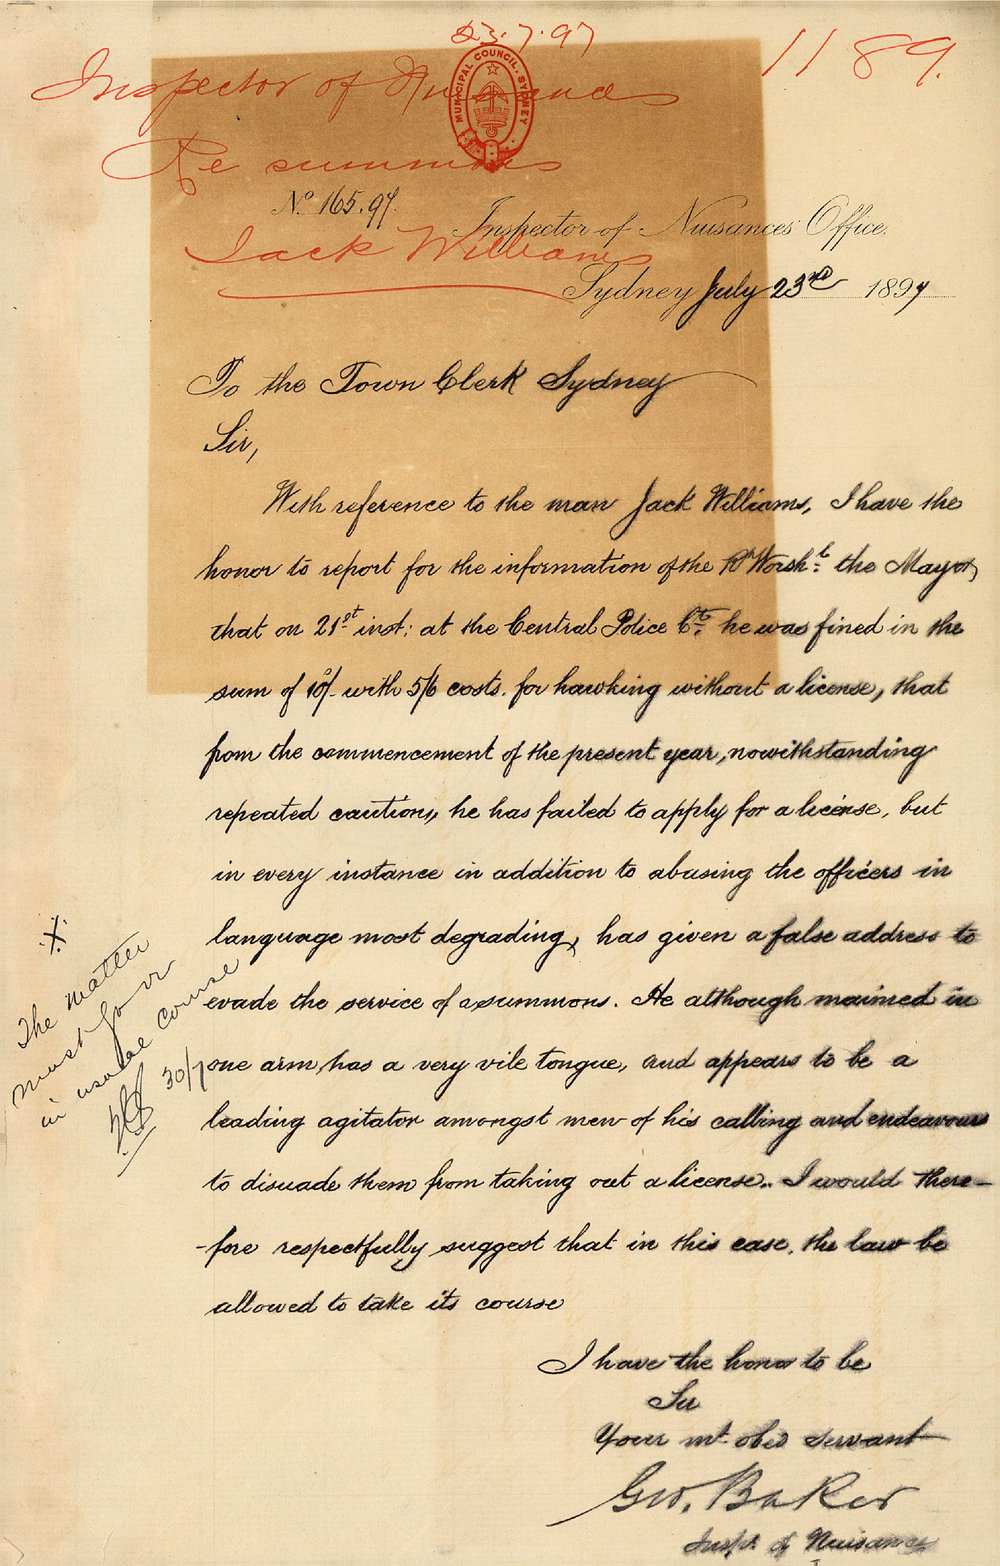 23.7.97
1189.
Inspector of Nuisances
MUNICIPAL COUNCIL, SYDNEY
Re summons
No. 165.97.
Inspector of Nuisances Office.
Jack Williams
Sydney July 23rd 1897
To the Town Clerk Sydney
Sir,
With reference to the man Jack Williams, I have the
honor to report for the information of the Rt Worshl. the Mayor,
that on 21st inst: at the Central Police Ct. he was fined in the
sum of 10/- with 5/6 costs. for hawking without a license, that
from the commencement of the present year, nowithstanding
repeated cautions, he has failed to apply for a license, but
in every instance in addition to abusing the officers in
language most degrading, has given a false address to
evade the service of a summons. He although maimed in
one arm, has a very vile tongue, and appears to be a
leading agitator amongst men of his calling and endeavours
to disuade them from taking out a license. I would there-
-fore respectfully suggest that in this case, the law be
allowed to take its course
I have the honor to be
Sir
Your mt. obed servant
Geo. Baker
Inspr. of Nuisances
X
The matter
must go on
in usual course
30/7